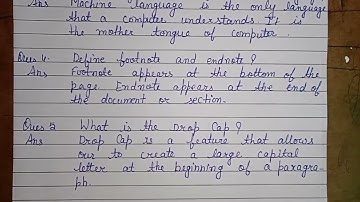 Ans Machine language is the only language
that a computer understands. It is
the mother tongue of computer.
Ques 4. Define footnote and endnote?
Ans Footnote appears at the bottom of the
page. Endnote appears at the end of
the document or section.
Ques 5 What is the Drop Cap?
Ans Drop Cap is a feature that allows
our to create a large capital
letter at the beginning of a paragra-
ph.